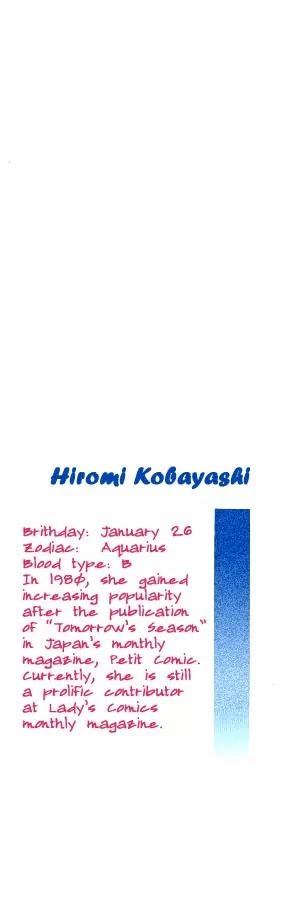 Hiromi Kobayashi
Brithday: January 26
Zodiac: Aquarius
Blood type: B
In 1980, she gained
increasing popularity
after the publication
of "Tomorrow's Season"
in Japan's monthly
magazine, Petit Comic.
Currently, she is still
a prolific contributor
at Lady's Comics
monthly magazine.